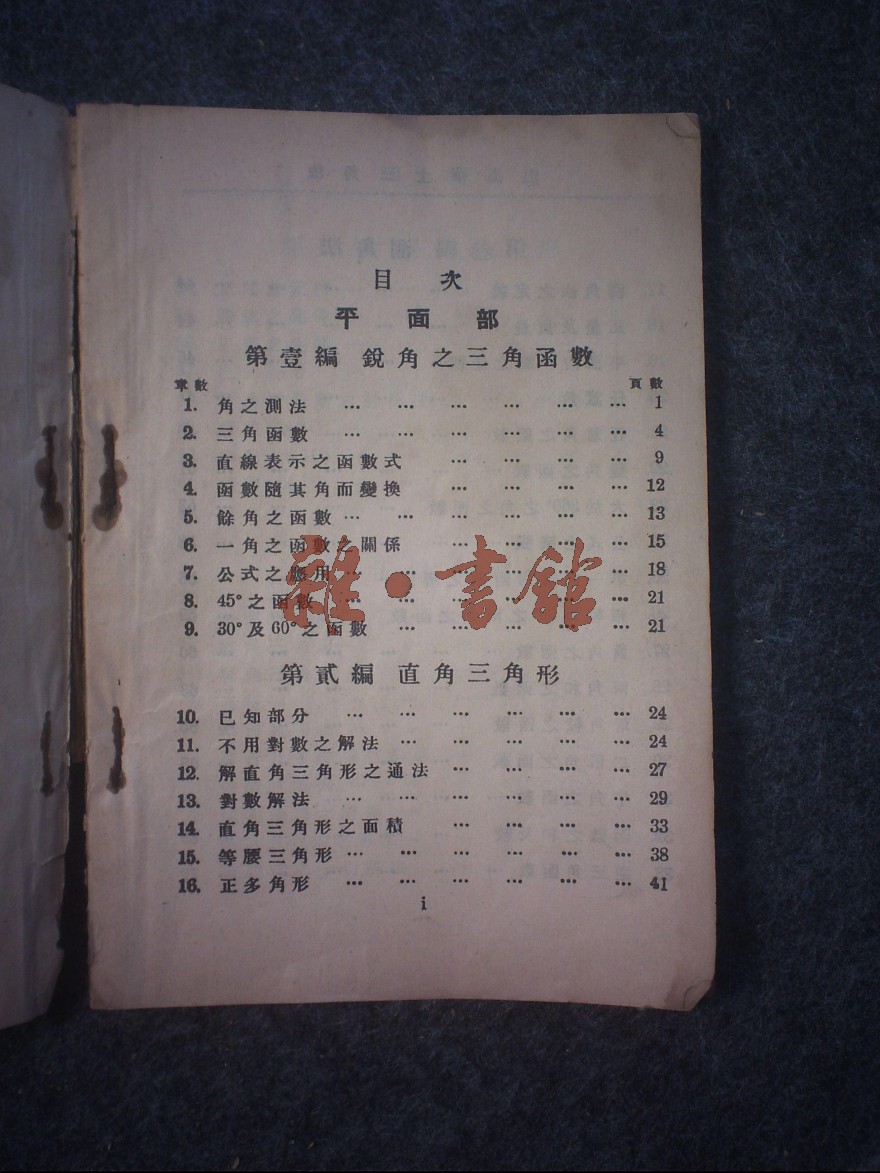 目次
平面部
第壹編 銳角之三角函數
章數 頁數
1. 角之測法 … … … … … … 1
2. 三角函數 … … … … … … 4
3. 直線表示之函數式 … … … … 9
4. 函數隨其角而變換 … … … … 12
5. 餘角之函數 … … … … … … 13
6. 一角之函數之關係 … … … … 15
7. 公式之應用 … … … … … … 18
8. 45°之函數 … … … … … … 21
9. 30°及60°之函數 … … … … … 21
第貳編 直角三角形
10. 已知部分 … … … … … … 24
11. 不用對數之解法 … … … … … 24
12. 解直角三角形之通法 … … … … 27
13. 對數解法 … … … … … … 29
14. 直角三角形之面積 … … … … 33
15. 等腰三角形 … … … … … … 38
16. 正多角形 … … … … … … 41
i
雜·書館